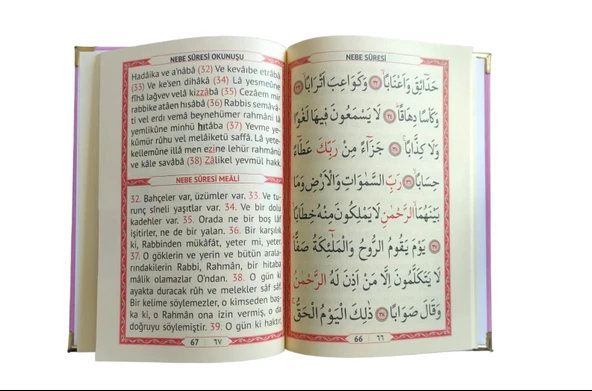 NEBE SÛRESİ OKUNUŞU
Hadâika ve a'nâbâ (32) Ve kevâıbe etrâbâ
(33) Ve ke'sen dihâkâ (34) Lâ yesmeûne
fîhâ lağvev velâ kizzâbâ (35) Cezâem mir
rabbike atâen hısâbâ (36) Rabbis semâvâ-
ti vel erdı vemâ beynehümer rahmâni lâ
yemlikûne minhü hıtâba (37) Yevme ye-
kûmür rûhu vel melâiketü saffâ. Lâ yete-
kellemûne illâ men ezine lehür rahmânü
ve kâle savâbâ (38) Zâlikel yevmül hakk,
NEBE SÛRESİ MEÂLİ
32. Bahçeler var, üzümler var. 33. Ve tu-
runç sîneli yaşıtlar var. 34. Ve bir dolu
kadehler var. 35. Orada ne bir boş lâf
işitirler, ne de bir yalan. 36. Bir karşılık
ki, Rabbinden mükâfât, yeter mi, yeter.
37. O göklerin ve yerin ve bütün arala-
rındakilerin Rabbi, Rahmân, bir hitaba
mâlik olamazlar O'ndan. 38. O gün ki
ayakta duracak rûh ve melekler sâf sâf.
Bir kelime söylemezler, o kimseden baş-
ka ki, o Rahmân ona izin vermiş, o da
doğruyu söylemiştir. 39. O gün ki haktır.
67 ٦٧
NEBE SÛRESİ
حَدَٓائِقَ وَاَعْنَابًا ﴿٣٢﴾ وَكَوَاعِبَ اَتْرَابًا ﴿٣٣﴾
وَكَاْسًا دِهَاقًا ﴿٣٤﴾ لَا يَسْمَعُونَ فِيهَا لَغْوًا
وَلَا كِذَّابًا ﴿٣٥﴾ جَزَٓاءً مِنْ رَبِّكَ عَطَٓاءً
حِسَابًا ﴿٣٦﴾ رَبِّ السَّمٰوَاتِ وَالْاَرْضِ وَمَا
بَيْنَهُمَا الرَّحْمٰنِ لَا يَمْلِكُونَ مِنْهُ خِطَابًا
﴿٣٧﴾ يَوْمَ يَقُومُ الرُّوحُ وَالْمَلٰٓئِكَةُ صَفًّا
لَا يَتَكَلَّمُونَ اِلَّا مَنْ اَذِنَ لَهُ الرَّحْمٰنُ
وَقَالَ صَوَابًا ﴿٣٨﴾ ذٰلِكَ الْيَوْمُ الْحَقُّ
66 ٦٦